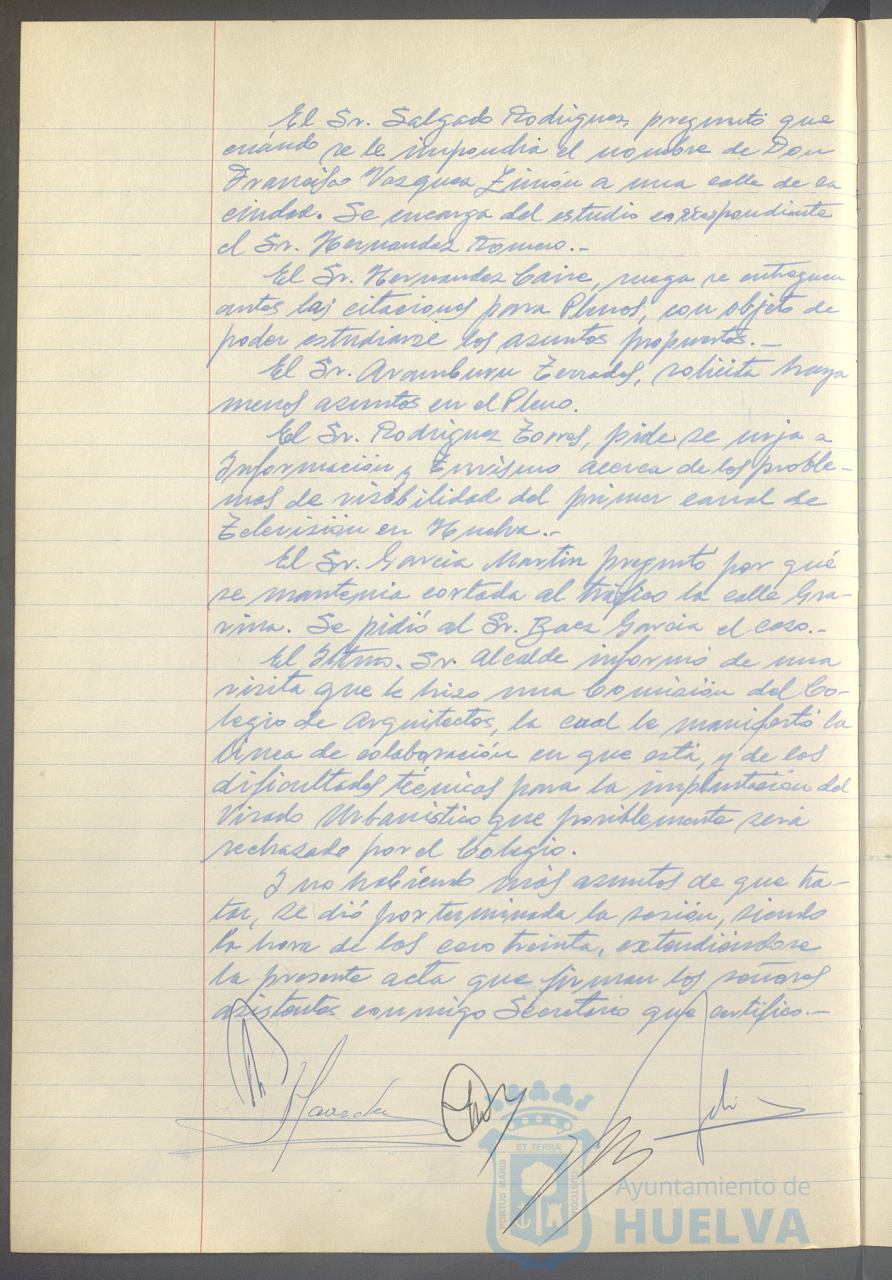 El Sr. Salgado Rodriguez, preguntó que
cuándo se le impondria el nombre de Don
Francisco Vazquez Limón a una calle de la
ciudad. Se encarga del estudio correspondiente
el Sr. Hernandez Romero.-
El Sr. Hernandez Caire, ruega se entreguen
antes las citaciones para Plenos, con objeto de
poder estudiarse los asuntos propuestos.-
El Sr. Aramburu Terrades, solicita haya
menos asuntos en el Pleno.
El Sr. Rodriguez Torres, pide se urja a
Información y Turismo acerca de los proble-
mas de visibilidad del primer canal de
Televisión en Huelva.-
El Sr. Garcia Martin preguntó por qué
se mantenia cortada al tráfico la calle Gra-
vina. Se pidió al Sr. Baez Garcia el caso.-
El Iltmo. Sr. Alcalde informó de una
visita que le hizo una Comisión del Co-
legio de Arquitectos, la cual le manifestó la
linea de colaboración en que está, y de las
dificultades técnicas para la implantación del
Visado Urbanistico que posiblemente será
rechazado por el Colegio.
Y no habiendo más asuntos de que tra-
tar, se dió por terminada la sesión, siendo
la hora de las cero treinta, extendiéndose
la presente acta que firman los señores
asistentes conmigo Secretario que certifico.-
ET TERRÆ
PORTUS MARIS
CUSTODIA
Ayuntamiento de
HUELVA